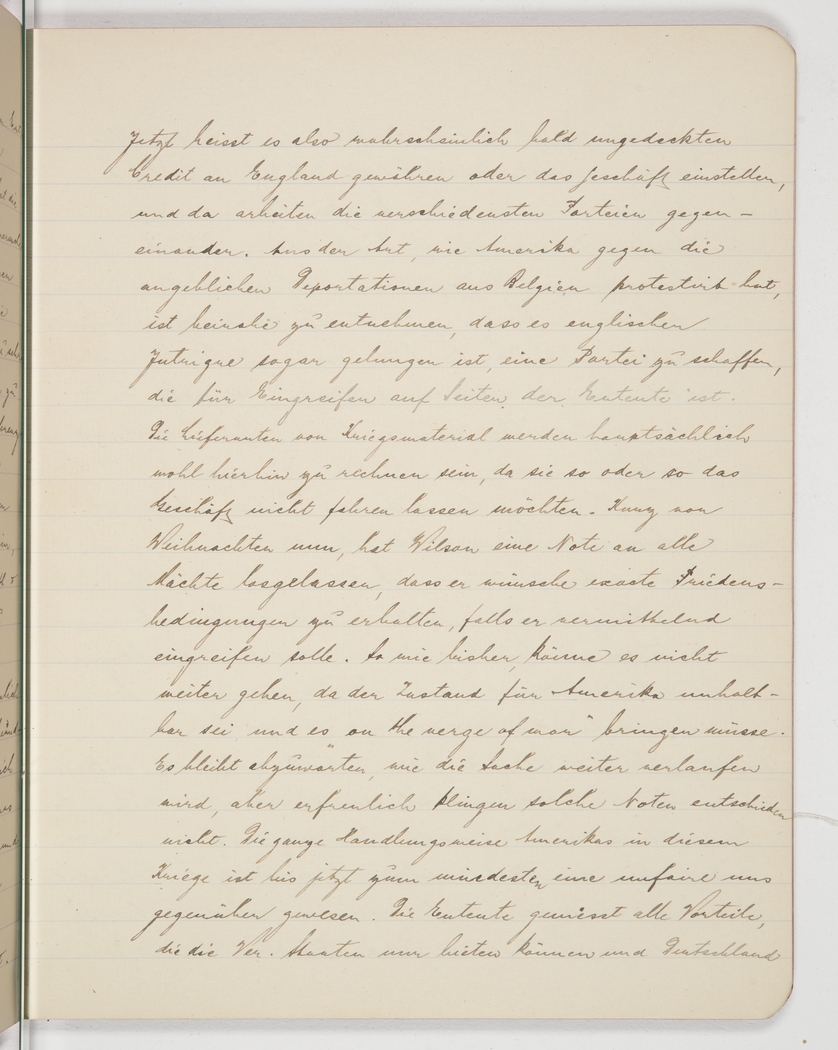 Jetzt heisst es also wahrscheinlich bald ungedeckten
Credit an England gewähren oder das Geschäft einstellen,
und da arbeiten die verschiedensten Parteien gegen-
einander. Aus der Art, wie Amerika gegen die
angeblichen Deportationen aus Belgien protestirt hat,
ist beinahe zu entnehmen, dass es englischer
Intrigue sogar gelungen ist, eine Partei zu schaffen,
die für Eingreifen auf Seiten der Entente ist.
Die Lieferanten von Kriegsmaterial werden hauptsächlich
wohl hierhin zu rechnen sein, da sie so oder so das
Geschäft nicht fahren lassen möchten. Kurz vor
Weihnachten nun, hat Wilson eine Note an alle
Mächte losgelassen, dass er wünsche exacte Friedens-
bedingungen zu erhalten, falls er vermittelnd
eingreifen solle. So wie bisher, könne es nicht
weiter gehen, da der Zustand für Amerika unhalt-
bar sei und es on the verge of war" bringen müsse.
Es bleibt abzuwarten, wie die Sache weiter verlaufen
wird, aber erfreulich klingen solche Noten entschieden
nicht. Die ganze Handlungsweise Amerikas in diesem
Kriege ist bis jetzt zum mindesten eine unfaire uns
gegenüber gewesen. Die Entente geniesst alle Vorteile,
die die Ver. Staaten nur bieten können und Deutschland